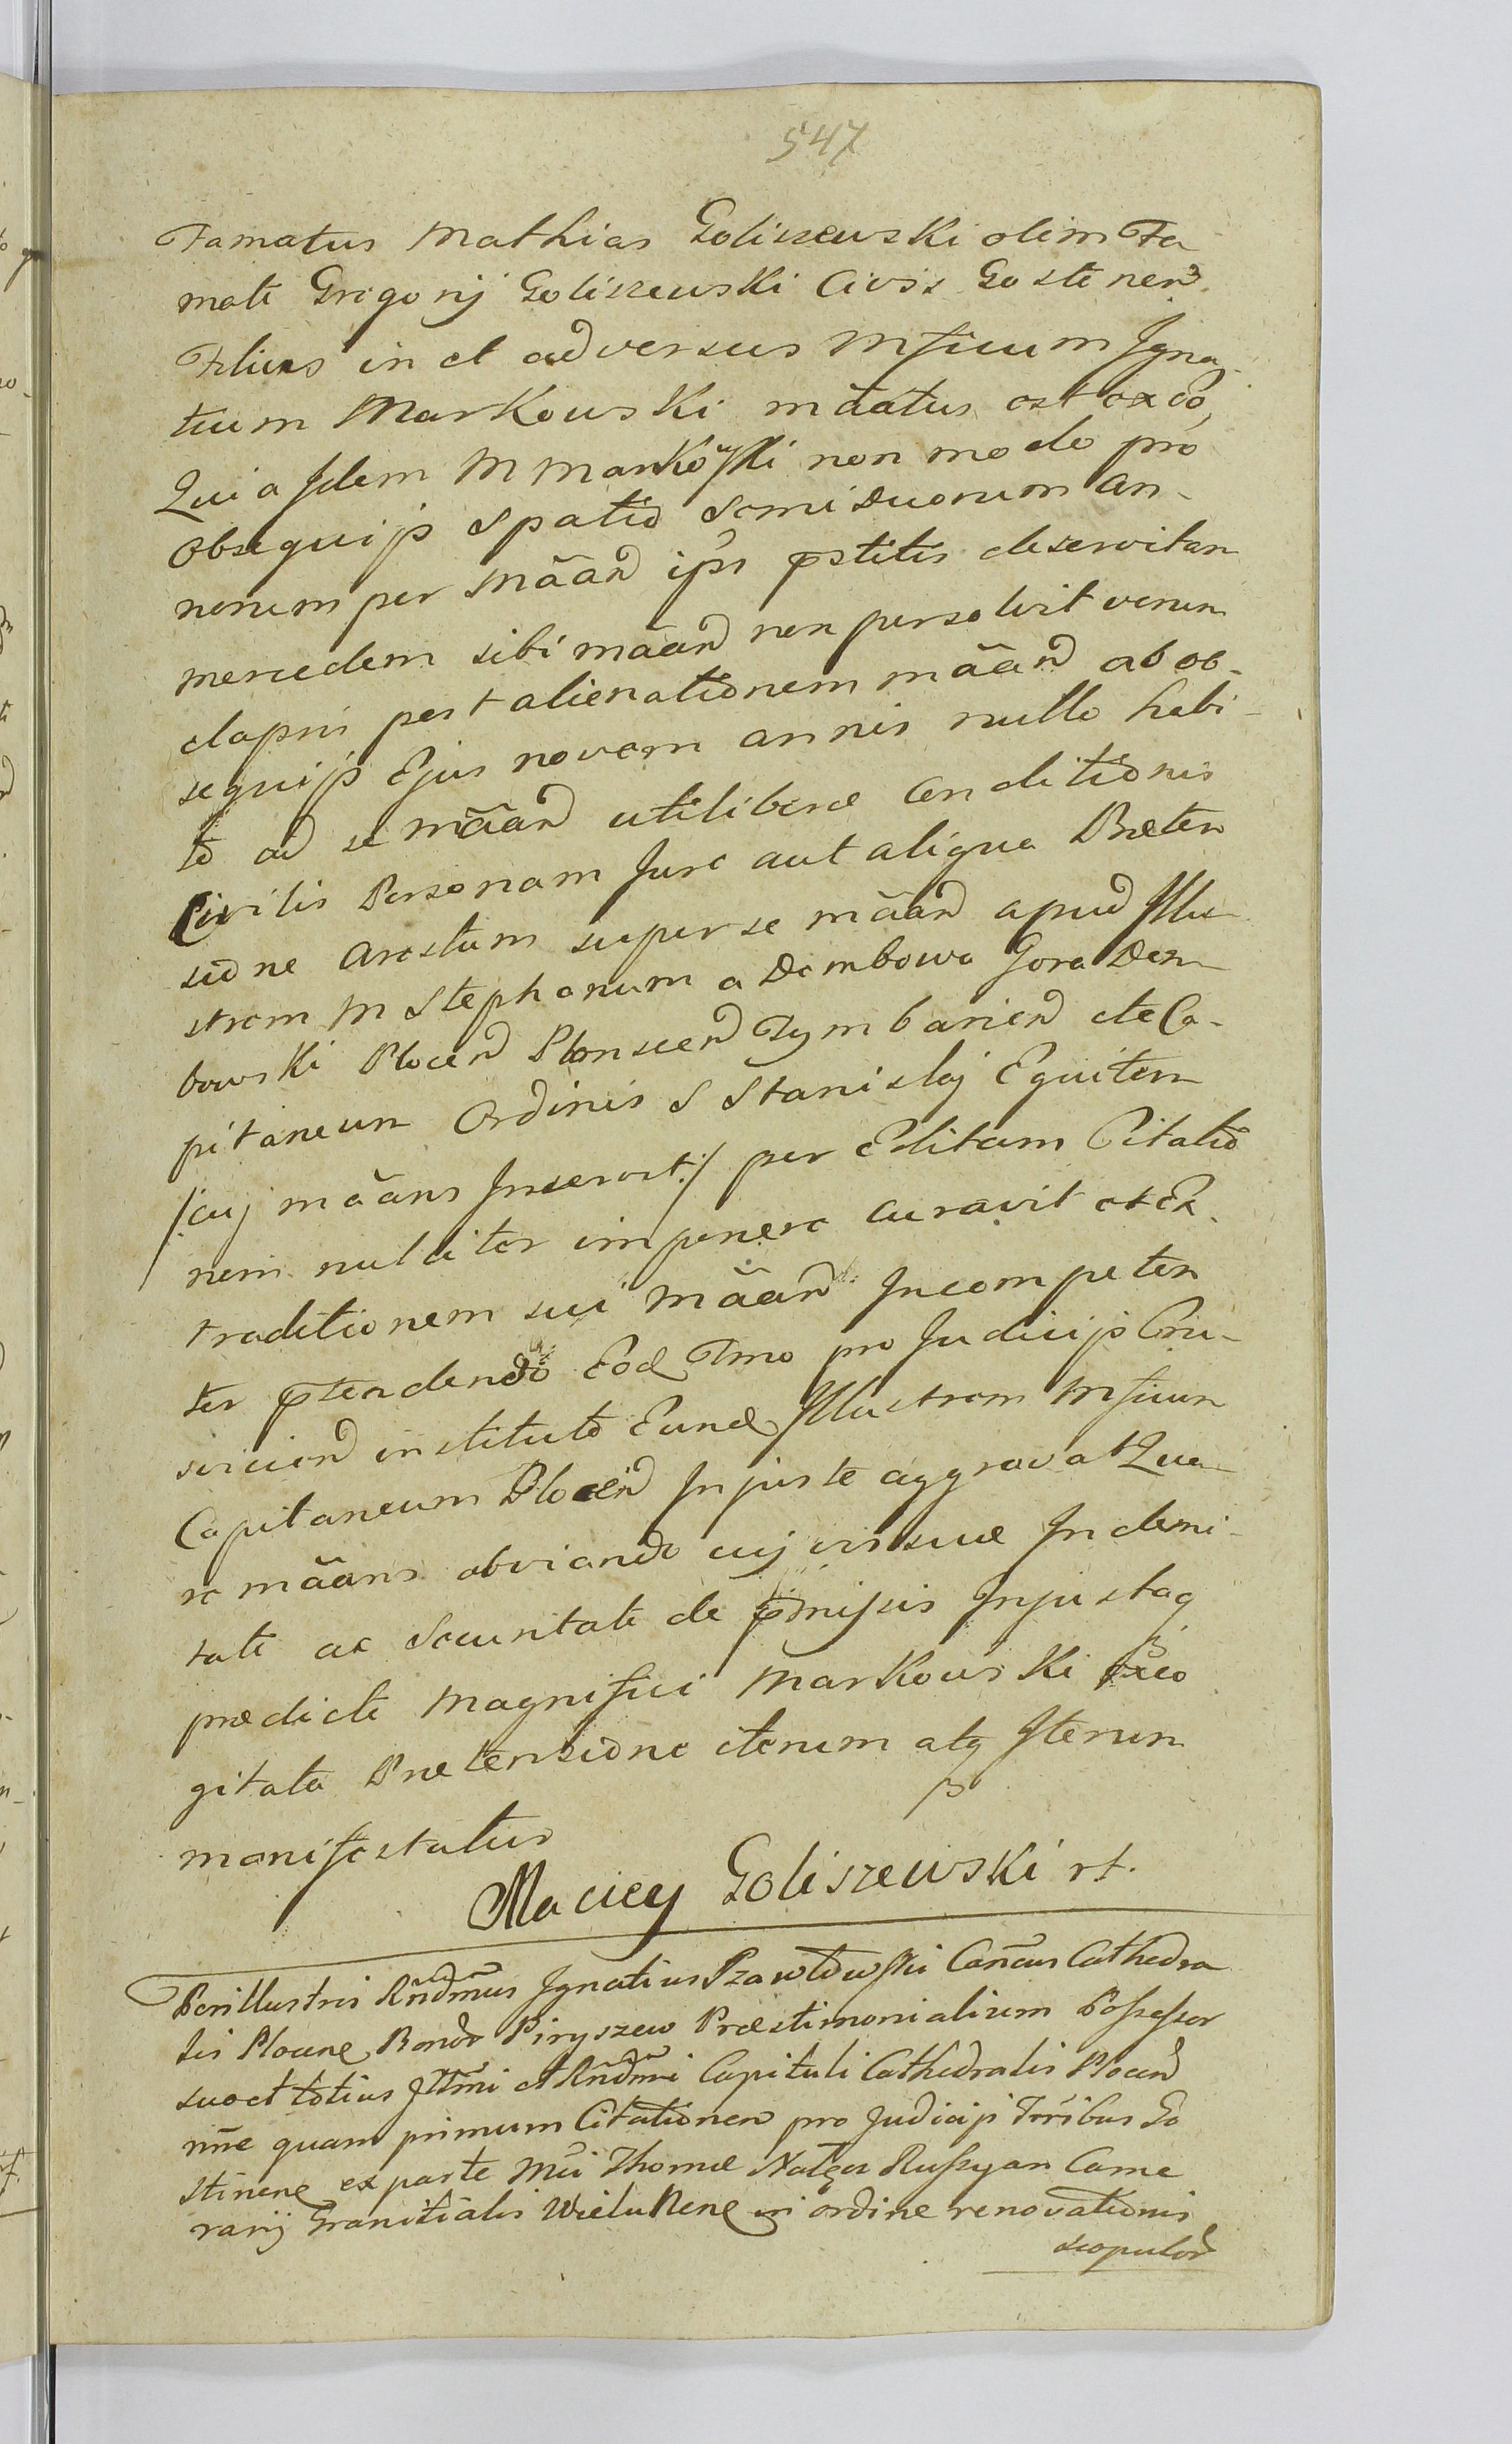 547
Famatus Mathias Goliszewski olim Fa
mati Grigorij Goliszewski Civis Gostinen
Filius in et adversus Mficum Igna
tium Markowski mãatus est exeo
Quia Idem M Markowski non modo pro
obsequijs spatio semiduorum an-
norum per mãan ipsi pstitis deservitam
mercedem sibi mãan non persolvit verum
elapsis post alienationem mãan ab ob-
sequijs Ejus novem annis nullo habi-
to ad se mãan uti liberæ Conditionis
Civilis Personam Jure aut aliqua Præten
sione Arestum super se mãan apud Illu
strem M Stephanum a Dembowa Gora Dem
bowski Plocen Plonscen Tymbarien etc Ca-
pitaneum Ordinis S Stanislaj Equitem
/:cuj mãans Inservit:/ per Editam Citatio
nem nulliter imponere curavit et Ex
traditionem sui mãan Incompeten
ter ptendendo Eod Tmo pro Judicijs
instituto Eund Illustrem Mficum
Capitaneum Plocen Injuste aggravat Qua
re mãans obviando cujvis suæ Indemni-
tati ac Securitati de pmissis Injustaq
prædicti Magnifici Markowski exco
gitata Prætensione iterum atq Iterum
manifestatur
Maciey Goliszewski rt.
Perillustris Rndmus Ignatius Przawłowski Cancus Cathedra
lis Plocen Bonor Piryszew Præstimonialium Possessor
suo et totius Illmi et Rndmi Capituli Cathedralis Plocen
nne quam primum Citationem pro Judicijs Trribus Go
stinen ex parte Mci Thomæ Natęcz Russyan Came
rarij Granitialis Wielunen in ordine renovationis
scopulor